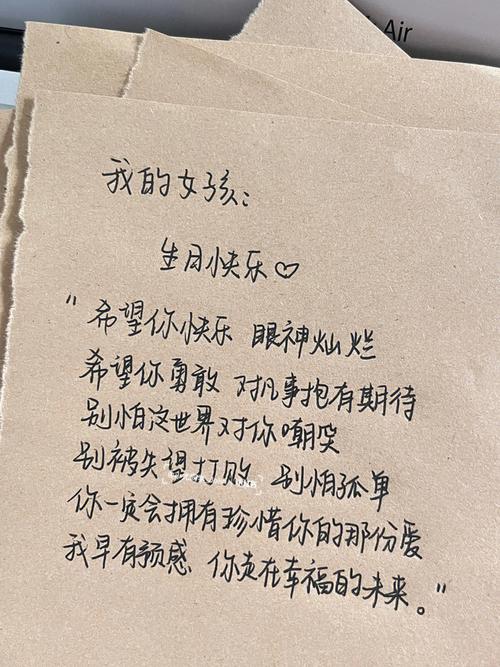 Air
我的女孩:
生日快乐♡
"希望你快乐 眼神灿烂
希望你勇敢 对凡事抱有期待
别怕这世界对你嘲笑
别被失误打败 别怕孤单
你一定会拥有珍惜你的那份爱
我早有预感 你走在幸福的未来。"